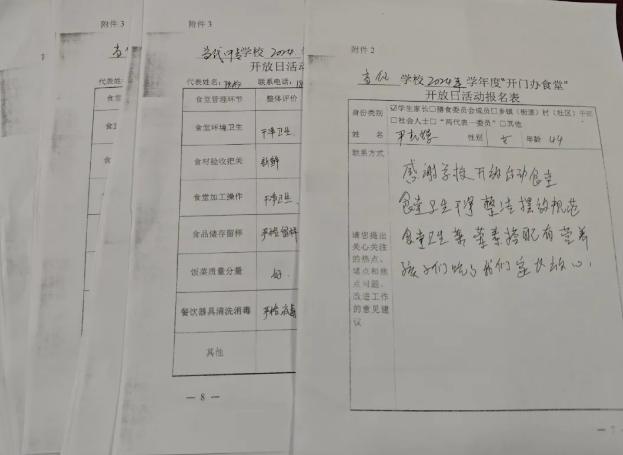 附件3
代表姓名
附件3
当代中专学校2024
开放日活动
代表姓名: 联系电话:
食堂管理环节 整体评价
食堂环境卫生 干净卫生
食材验收把关 新鲜
食堂加工操作 干净卫生
食品储存留样 严格留样
饭菜质量分量 好
餐饮器具清洗消毒 严格消毒
其他
— 8 —
附件2
学校2024年学年度"开门办食堂"
开放日活动报名表
身份类别 ☑学生家长□膳食委员会成员□乡镇(街道)村(社区)干部
□社会人士□"两代表一委员"□其他
姓名 性别 女 年龄 44
联系方式
请您提出
关心关注
的热点、
堵点和焦
点问题,
改进工作
的意见建
议
感谢学校开放活动食堂
食堂卫生干净整洁摆放规范
食堂卫生菜荤素搭配有营养
孩子们吃了我们家长放心!
— 7